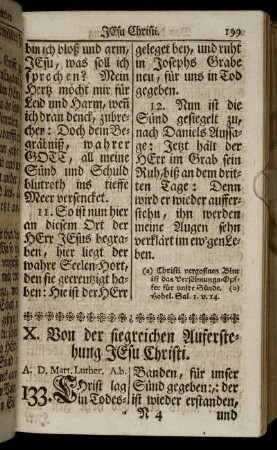 JEsu Christi. 199
bin ich bloß und arm,
JEsu, was soll ich
sprechen? Mein
Hertz möcht mir für
Leid und Harm, weñ
ich dran denck, zubre-
chen: Doch dein Be-
gräbniß, wahrer
GOTT, all meine
Sünd und Schuld
blutroth ins tieffe
Meer versencket.
11. So ist nun hier
an diesem Ort der
HErr JEsus begra-
ben, hier liegt der
wahre Seelen-Hort,
den sie gecreutzigt ha-
ben: Hie ist der HErr
geleget bey, und ruht
in Josephs Grabe
neu, für uns in Tod
gegeben.
12. Nun ist die
Sünd gesiegelt zu,
nach Daniels Aussa-
ge: Jetzt hält der
HErr im Grab sein
Ruh, biß an dem drit-
ten Tage: Denn
wird er wieder auffer-
stehn, ihn werden
meine Augen sehn
verklärt im ew'gen Le-
ben.
(a) Christi vergossnes Blut
ist das Versöhnungs-Opf-
fer für unsre Sünde. (b)
Hohel. Sal. 1. v. 14.
X. Von der siegreichen Auferste-
hung JEsu Christi.
A. D. Mart. Luther. A. b.
133. Christ lag
in Todes-
Banden, für unser
Sünd gegeben:,: der
ist wieder erstanden,
N 4 und